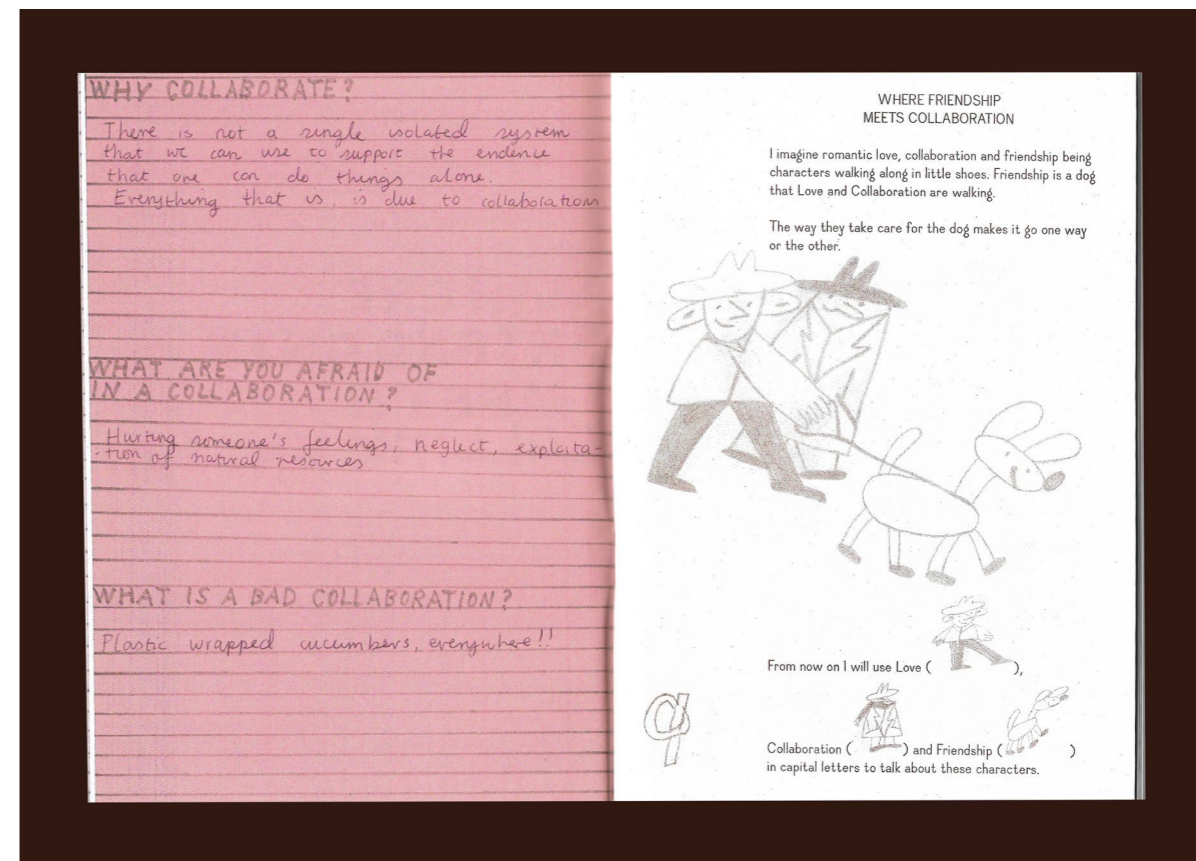 WHY COLLABORATE?
There is not a single isolated system
that we can use to support the endence
that one can do things alone.
Everything that is, is due to collaboration
WHAT ARE YOU AFRAID OF
IN A COLLABORATION?
Hurting someone's feelings, neglect, exploita-
-tion of natural resources
WHAT IS A BAD COLLABORATION?
Plastic wrapped cucumbers, everywhere!!
WHERE FRIENDSHIP
MEETS COLLABORATION
I imagine romantic love, collaboration and friendship being
characters walking along in little shoes. Friendship is a dog
that Love and Collaboration are walking.
The way they take care for the dog makes it go one way
or the other.
From now on I will use Love ( ),
Collaboration ( ) and Friendship ( )
in capital letters to talk about these characters.